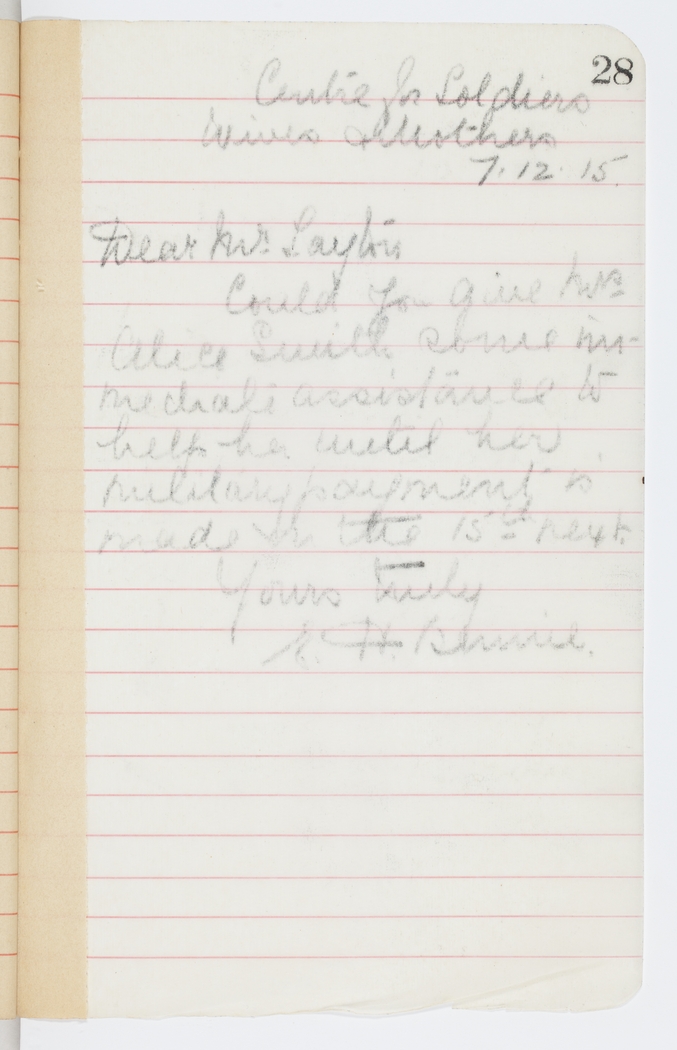 28
Centre for Soldiers
Wives & Mothers
7.12.15.
Dear Mr. Layton
Could you give Mrs
Alice Smith some im-
mediate assistance to
help her until her
military payment is
made on the 15th next.
Yours truly
E. H. Bennie.